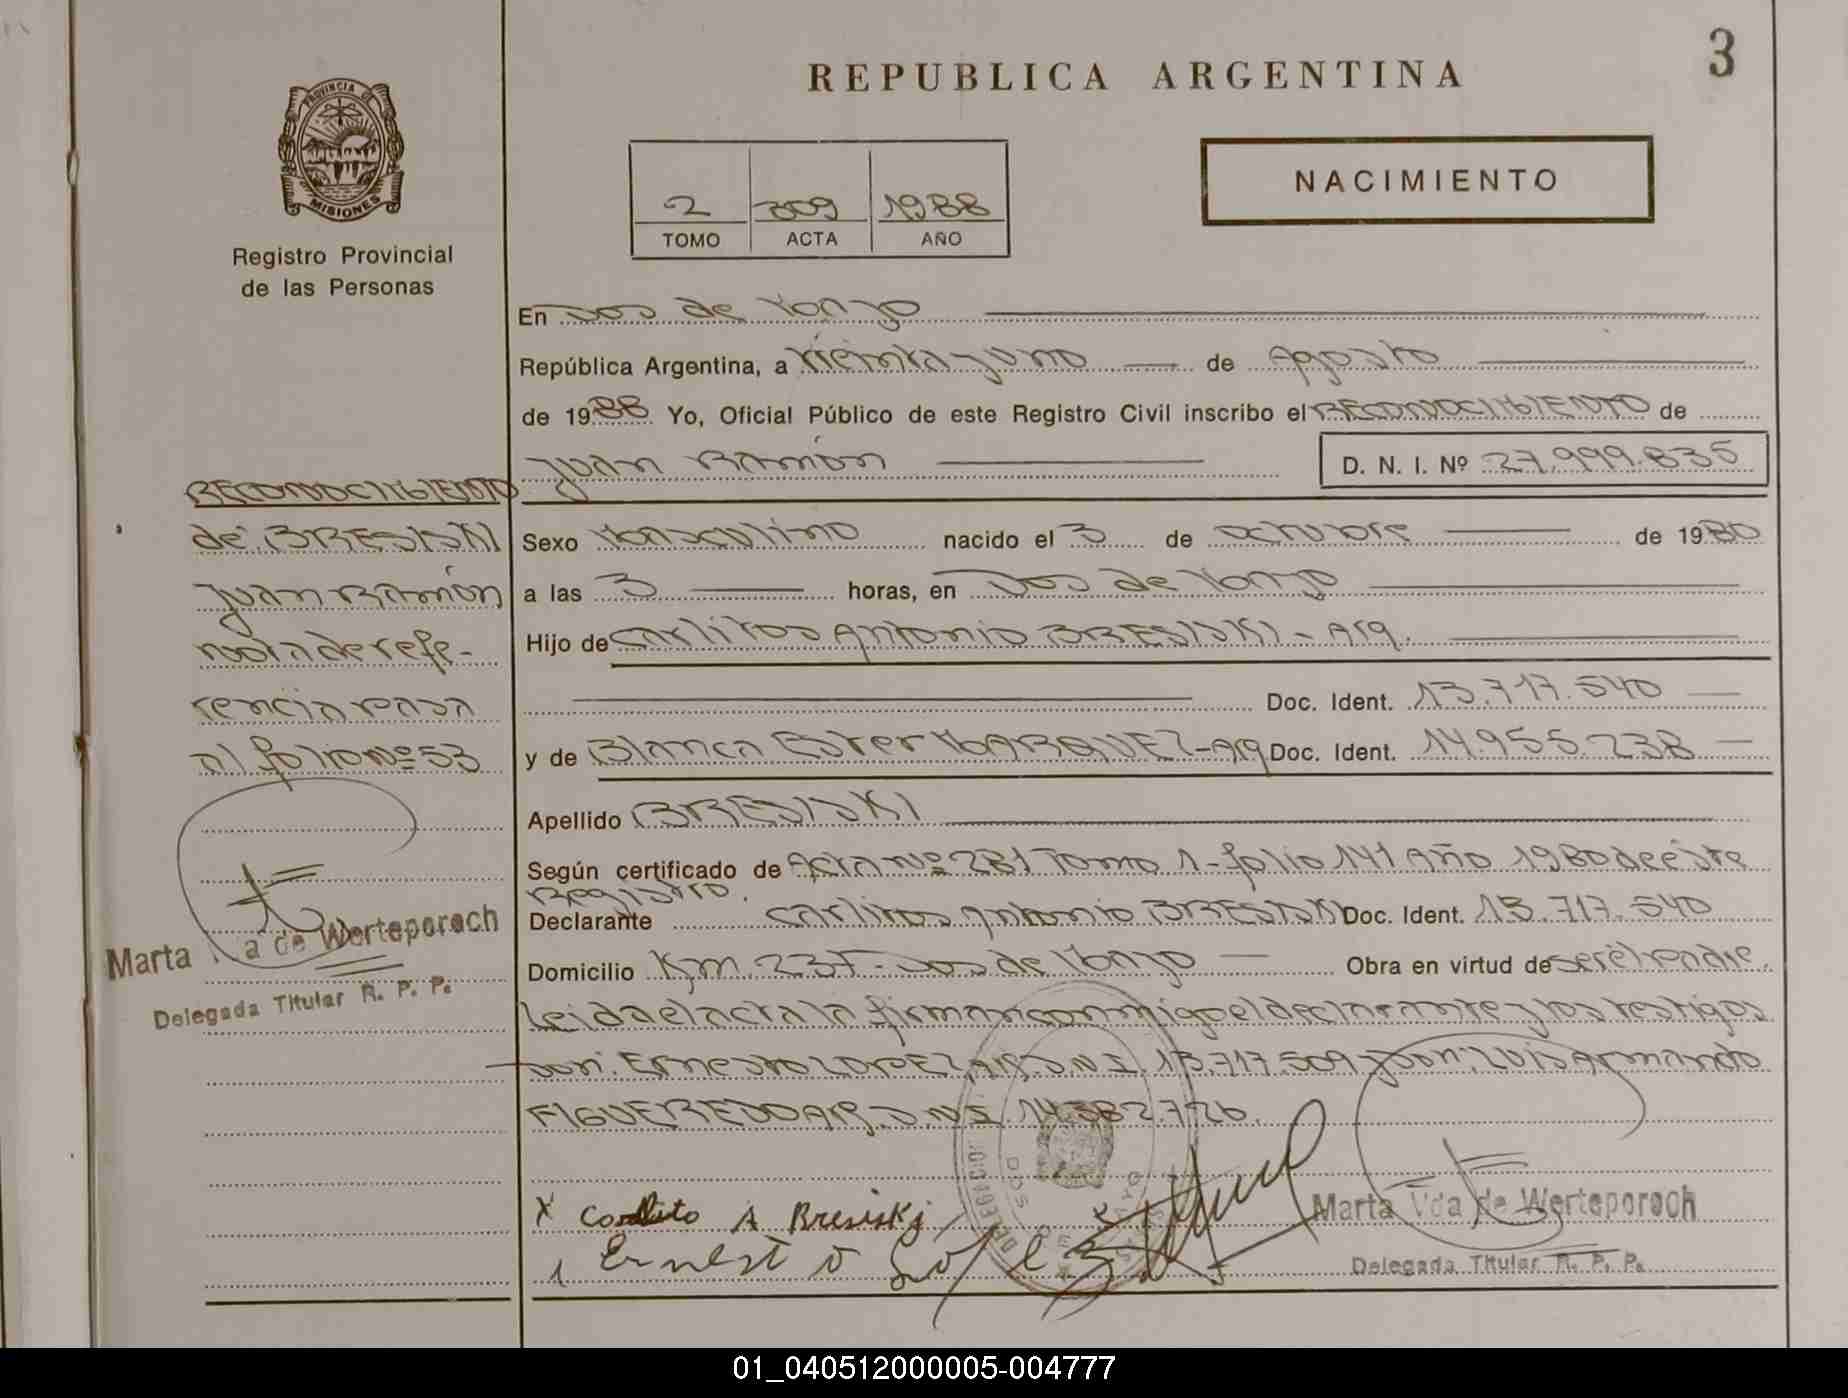 3
REPUBLICA ARGENTINA
PROVINCIA DE
MISIONES
NACIMIENTO
2 309 1988
TOMO ACTA AÑO
Registro Provincial
de las Personas
En Dos de Mayo
República Argentina, a treinta y uno de Agosto
de 1988 Yo, Oficial Público de este Registro Civil inscribo el RECONOCIMIENTO de
Juan Ramón D. N. I. Nº 27.999.835
RECONOCIMIENTO
de: BRESISKI
Juan Ramón
nota de refe-
rencia pasa
al folio nº 53
Marta a de Werteporoch
Delegada Titular R. P. P.
Sexo Masculino nacido el 3 de octubre de 1980
a las 3 horas, en Dos de Mayo
Hijo de Carlitos Antonio BRESISKI - Arg.
Doc. Ident. 13.717.540
y de Blanca Ester MARQUEZ - Arg Doc. Ident. 14.955.238
Apellido BRESISKI
Según certificado de Acta nº 281 Tomo 1 - folio 141 Año 1980 de este
Registro.
Declarante Carlitos Antonio BRESISKI Doc. Ident. 13.717.540
Domicilio Km. 237 - Dos de Mayo Obra en virtud de ser el padre.
Leida el acta la firman conmigo el declarante y los testigos
Don: Ernesto LOPEZ, Arg. D.N.I. 13.717.509 y Don: Luis Armando
FIGUEREDO Arg. D.N.I. 14.382.726.
X Carlito A Bresiski
Ernesto Lopez
Marta Vda de Werteporoch
Delegada Titular R. P. P.
01_040512000005-004777